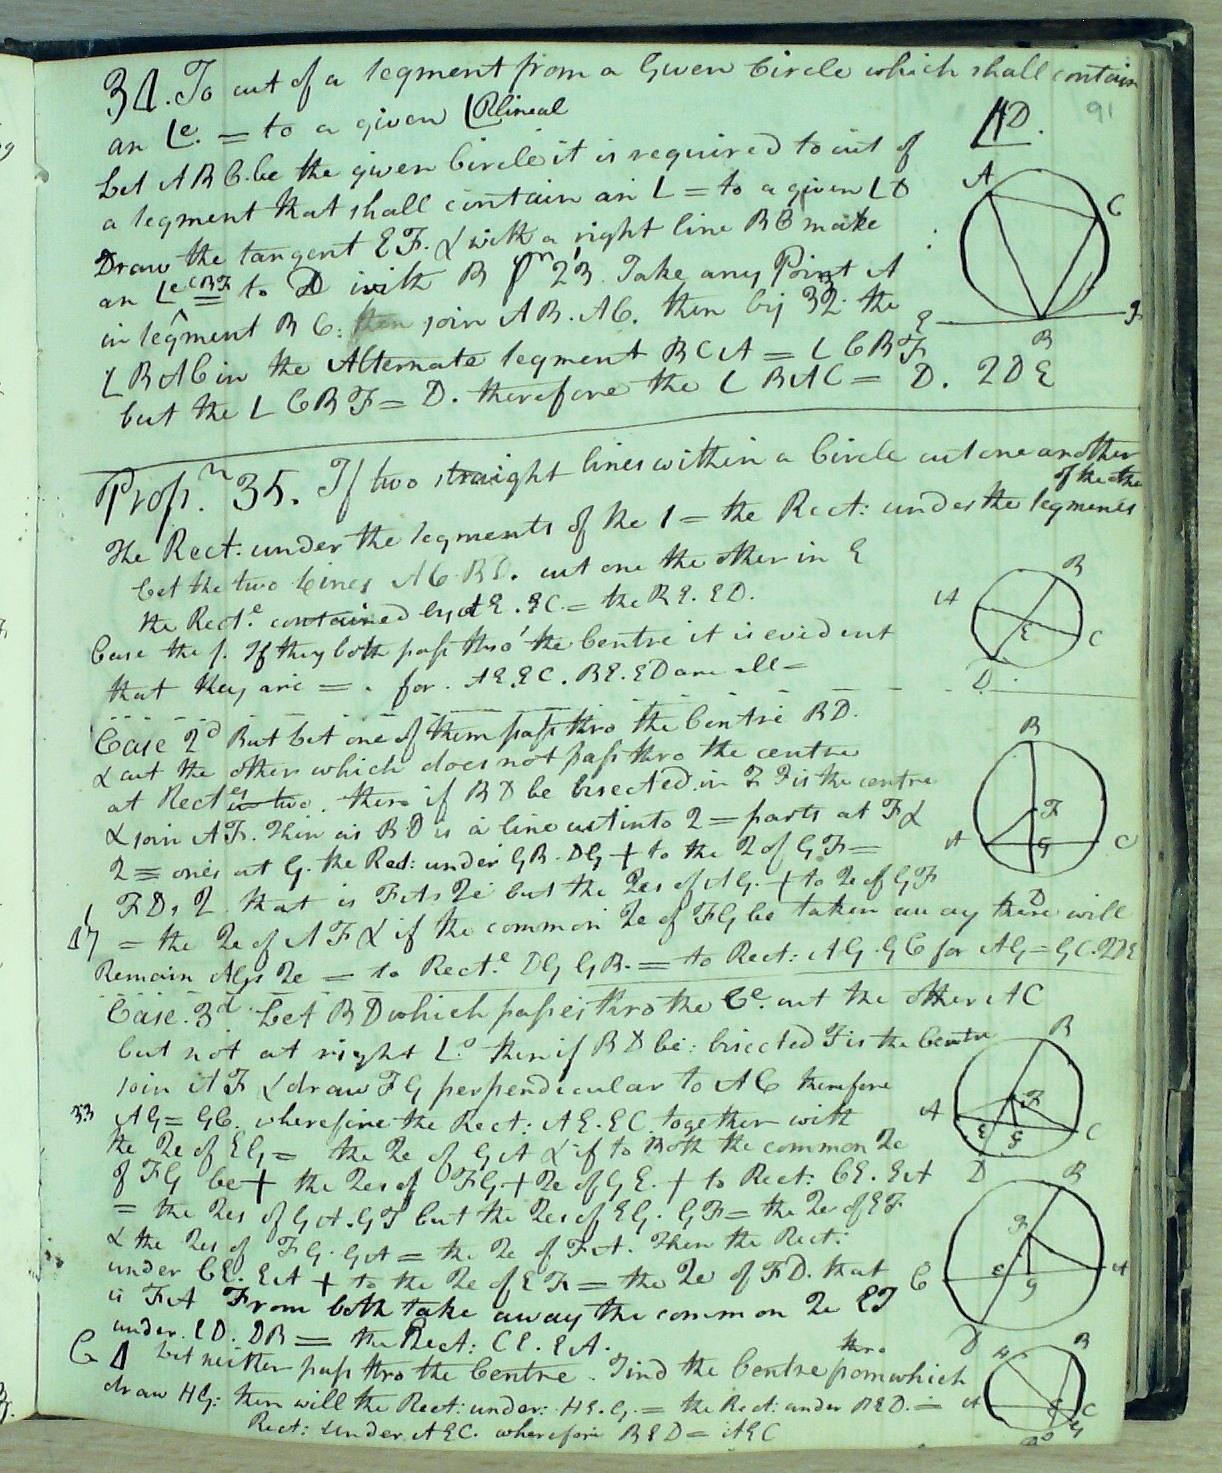 34. To cut of a segment from a Given Circle which shall contain
an Le. = to a given LRlineal
91
LD.
Let ABC. be the given Circle it is required to cut of
a segment that shall contain an L = to a given LD
Draw the tangent EF. & with a right line BC make
an Le CBF = to D with B Pn 23. Take any Point A
in segment BC: then join AB. AC. then by 32 the
L BAC in the Alternate segment BCA = L CBF
but the L CBF = D. therefore the L BAC = D. 2DE
A
C
E
F
B
Propn. 35. If two straight lines within a Circle cut one another
of the other
The Rect: under the segments of the 1 = the Rect: under the segments
Let the two Lines AC. BD. cut one the other in E
the Recte. contained by AE. EC. = the BE. ED.
Case the 1. If they both pass thro' the Centre it is evident
that they are = . for. AE. EC. BE. ED are all =
B
A
E
C
D
Case 2d But let one of them pass thro the Centre BD.
& cut the other which does not pass thro the centre
at Rect es in two. then if BD be bisected in F F is the centre
& join AF. Then as BD is a line cut into 2 = parts at F &
2 = ones at G. the Rect: under GB. DG + to the 2 of GF =
FD, 2 that is FAs 2e but the 2es of AG. + to 2e of GF
47 = the 2e of AF & if the common 2e of FG be taken away there will
Remain AGs 2e = to Recte. DG GB. = to Rect: AG. GC for AG = GC. 2DE
B
F
A
G
C
D
Case. 3d Let BD which passes thro the Ce. cut the other AC
but not at right Ls. then if BD be: bisected F is the Centre
join AF & draw FG perpendicular to AC therefore
33 AG = GC. wherefore the Rect: AE. EC. together with
the 2e of EG = the 2e of GA & if to Both the common 2e
of FG be + the 2es of FG + 2e of GE. + to Rect: CE. EA
= the 2es of GA. GF but the 2es of EG. GF = the 2e of EF
& the 2es of FG. GA = the 2e of FA. Then the Rect:
under CE. EA + to the 2e of EF = the 2e of FD. that
is FA From both take away the common 2e EF
under. ED. DB = the Rect: CE. EA.
B
A
F
E
G
C
D
B
F
C
E
G
A
D
thro
C 4 Let neither pass thro the Centre. Find the Centre from which
draw HG: then will the Rect: under: HE. G. = the Rect: under BED. =
Rect: under. AEC. wherefore BED = AEC
H
B
A
E
C
G
D